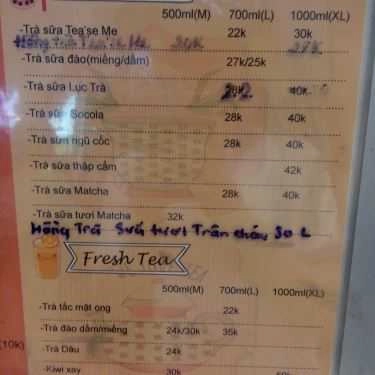 500ml(M) 700ml(L) 1000ml(XL)
-Trà sữa Tea'se Me 22k 30k
Hồng 30K 37K
-Trà sữa đào(miếng/dầm) 27k/25k
-Trà sữa Lục Trà 40k
-Trà sữa Socola 28k 40k
-Trà sữa ngũ cốc 28k 40k
-Trà sữa thập cẩm 42k
-Trà sữa Matcha 28k 40k
-Trà sữa tươi Matcha 32k
Hồng Trà Sữa tươi Trân châu 30 L
Fresh Tea
500ml(M) 700ml(L) 1000ml(XL)
-Trà tắc mật ong 22k
-Trà đào dầm/miếng 24k/30k 35k
-Trà Dâu 24k
(10k)
-Kiwi xay 30k